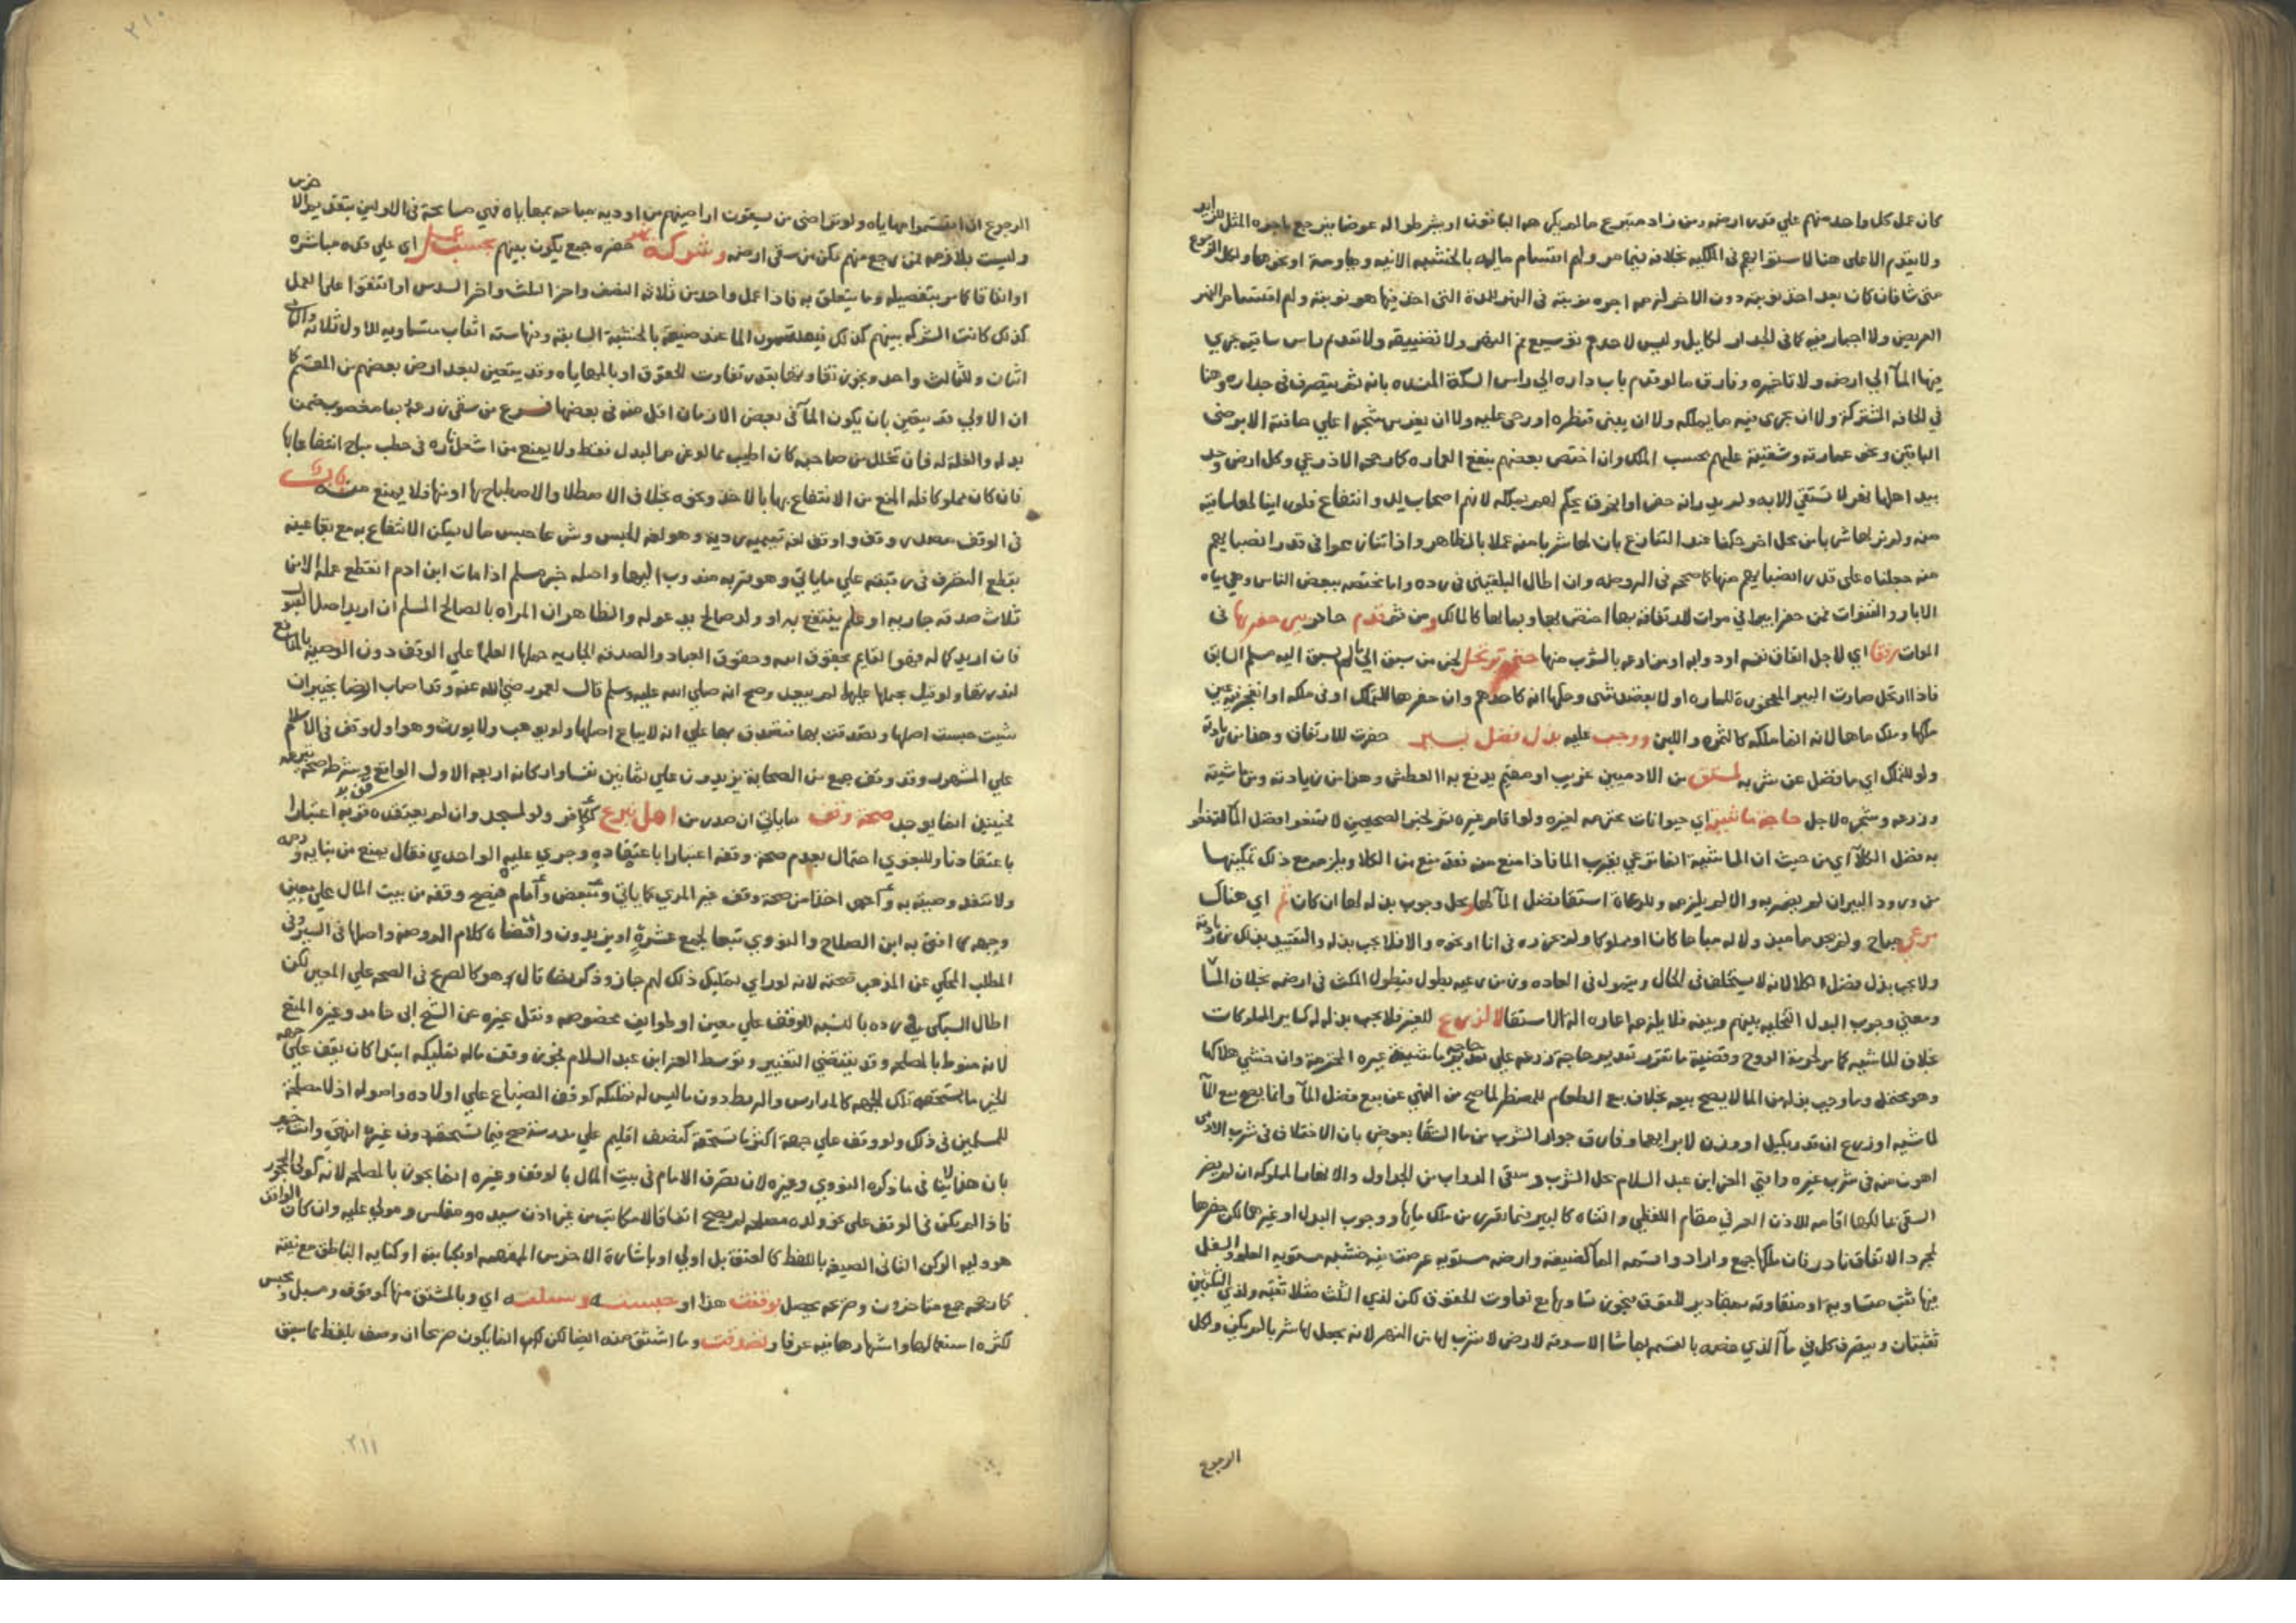 كان عمل كل واحد منهم علي قدر ارضه ومن زاد متبرع ما لم يكن هو الباقون او يشرطوا له عوضا فيرجع باجرة المثل للزايد
ولا يقدم الاعلى هنا لاستوائهم في الملكيه بخلافه فيما مر ولهم اقتسام مايه بالخشبه الاتيه ومهاومة او نحوها ولكل الرجوع
متى شا فان كان بعد اخذ نوبته دون الاخر لزمه اجره نوبته في النهر للمدة التي اخذ فيها هو نوبته ولهم اقتسام النهر
العريض ولا اجبار فيه كما في الجدار الحايل وليس لاحدهم توسيع فم النهر ولا تضييقه ولا تقديم راس ساقيه يجري
فيها المآ الي ارضه ولا تاخيره وفارق ما لو قدم باب داره الي راس السكة المنسده بانه ثم يتصرف في جداره وهنا
في الحافه المشتركة ولا ان يجري فيه ما يملكه ولا ان يبني قنطره او رحى عليه ولا ان يغرس شجرا علي حافته الا برضى
الباقين ونحو عمارته وتنقيته عليهم بحسب الملك وان اختص بعضهم بنفع العماره كما رجحه الاذرعي وكل ارض وجد
بيد اهلها نهر لا تسقي الا به ولم يدر انه حفر او انخرق يحكم لهم بملكه لانهم اصحاب يد وانتفاع فلو راينا لها ساقية
منه ولم نر لها شربا من محل اخر حكمنا عند التنازع بان لها شربا منه عملا بالظاهر واذا تنازعوا في قدر انصبايهم
منه جعلناه على قدر انصبايهم منها كما صححه في الروضه وان اطال البلقيني في رده واما مختصه ببعض الناس وهي مياه
الابار والقنوات فمن حفر بيرا في موات للارتفاق بها اختص بها وبمايها كالمالك ومن ثم قدم حافر بير حفرها في
الموات رفقا اي لاجل ارتفاق نفسه او دوابه او من ارضه بالشرب منها حتى يرتحل لخبر من سبق الي ما لم يسبق اليه مسلم السابق
فاذا ارتحل صارت البير المحفورة للماره او لا بقصد شي وحكمها انه كاحدهم وان حفرها للتملك او في ملكه او انفجر فيه عين
ملكها وملك ماها لانه انما ملكه كالثمره واللبن ووجب عليه بذل فضل بير حفرت للارتفاق وهذا من زيادته
ولو للتملك اي ما فضل عن شربه لمستق من الادميين غريب او مقيم يدفع به العطش وهذا من زيادته ومن ماشيته
وزرعه وشجره لاجل حاجة ماشية اي حيوانات محترمه لغيره ولو اقام غيره ثم لخبر الصحيحين لا تمنعوا فضل المآ لتمنعوا
به فضل الكلآ اي من حيث ان الماشيه انما ترعي بقرب الما فاذا منع منه فقد منع من الكلا ويلزمه مع ذلك تمكينها
من ورود البير ان لم يضر به والا لم يلزمه وللرعاة استقا فضل المآ لها ومحل وجوب بذله لها ان كان ثم اي هناك
مرعى مباح ولم يجد ما مبذولا له مباحا كان او مملوكا ولم يحرزه في انا او نحوه والا فلا يجب بذله والتقييد بذلك من زيادته
ولا يجب بذل فضل الكلا لانه لا يستخلف في الحال ويتمول في العاده وزمن رعيه يطول فيطول المكث في ارضه بخلاف المآ
ومعني وجوب البذل التخليه بينهم وبينه فلا يلزمه اعاره اله الاستقا لا لزرع للغير فلا يجب بذله له كساير المملوكات
بخلاف الماشيه كما مر لحرمة الروح وقضية ما تقرر تقديم حاجة زرعه علي حاجه ماشية غيره المحترمة وان خشي هلاكها
وهو محتمل وما وجب بذله من الما لا يصح بيعه بخلاف بيع الطعام للمضطر لما صح من النهي عن بيع فضل المآ وانما يصح بيع المآ
لماشيه او زرع ان قدر بكيل او وزن لا بريهما وفارق جواز الشرب من ما السقا بعوض بان الاختلاف في شرب الادمي
اهون منه في شرب غيره وافتي العز ابن عبد السلام بحل الشرب وسقي الدواب من الجداول والانهار المملوكه ان لم يضر
السقي بمالكها اقامه للاذن العرفي مقام اللفظي والقناه كالبير فيما تقرر من ملك مايها ووجوب البذل وغيرهما لكن حفرها
لمجرد الارتفاق نادر فان ملكها جمع وارادوا قسمه المآ لضيقه وارضه مستويه عرضت فيه خشبه مستويه العلو والسفل
فيها ثقب متساويه او متفاوته بمقادير الحقوق فيجوز تساويها مع تفاوت الحقوق لكن لذي الثلث مثلا ثقبه ولذي الثلثين
ثقبتان ويتصرف كل في مآ الذي خصه بالقسمه بما شا الا سوقه لارض لا شرب لها من النهر لانه يجعل لها شربا لم يكن ولكل
الرجوع
الرجوع ان اقتسموا مهاياه ولو تراضى من يسقون اراضيهم من اوديه مباحه بمهاياه فهي مسامحة في الاولين بتقديم الاخرين
وليست بلازمه لمن رجع منهم تمكن من سقي ارضه وشركة حفره جمع يكون بينهم بحسب عمل اي علي قدره مباشره
او انفاقا كما مر بتفصيله وما يتعلق به فاذا عمل واحد من ثلاثه النصف واخر الثلث واخر السدس او اتفقوا على العمل
كذلك كانت الشركه بينهم كذلك فيقتسمون الما عند ضيقه بالخشبة السابقة وفيها سته اثقاب متساويه للاول ثلاثه وللثاني
اثنان وللثالث واحد ويجوز تفاوتها بقدر تفاوت الحقوق او بالمهاياه وقد يتعين لبعد ارض بعضهم من المقسم كما
ان الاولي قد يتعين بان يكون المآ في بعض الازمان اقل منه في بعضها فرع من سقى زرعه بما مغصوب ضمن
بدله والغلة له فان تحلل من صاحبه كان اطيب مما لو غرم البدل فقط ولا يمنع من اشعل ناره في حطب مباح انتفاعا بها
فان كان مملوكا فله المنع من الانتفاع بها بالاخذ ونحوه بخلاف الاصطلا والاستصباح بها او منها فلا يمنع منه باب
في الوقف مصدر وقف واوقف لغه تميميه رديه وهو لغه الحبس وشرعا حبس مال يمكن الانتفاع به مع بقا عينه
بقطع التصرف في رقبته علي ما ياتي وهو قربه مندوب اليها واصله خبر مسلم اذا مات ابن ادم انقطع عمله الا من
ثلاث صدقه جاريه او علم ينتفع به او ولد صالح يدعو له والظاهر ان المراد بالصالح المسلم ان اريد اصل الثواب
فان اريد كماله فهو القايم بحقوق الله وحقوق العباد والصدقه الجاريه حملها العلما علي الوقف دون الوصيه بالمنافع
لندرتها ولو قيل بحملها عليها لم يبعد وصح انه صلي الله عليه وسلم قال لعمر رضي الله عنه وقد اصاب ارضا بخيبر ان
شيت حبست اصلها وتصدقت بها فتصدق بها علي ان لا يباع اصلها ولا يوهب ولا يورث وهو اول وقف في الاسلام
علي المشهور وقد وقف جمع من الصحابة يزيدون علي ثمانين نفسا واركانه اربعه الاول الواقف وشرطه صحه تبرعه
فحينئذ انما يوجد صحة وقف ما ياتي ان صدر من اهل تبرع ككافر ولو لمسجد وان لم يعتقده قربه اعتبارا
باعتقادنا وللبغوي احتمال بعدم صحة وقفه اعتبارا باعتقاده وجري عليه الواحدي فقال يمنع من بنايه
ولا تنفذ وصيته به وكاعمى اخذا من صحة وقف غير المري كما ياتي ومبعض وامام فيصح وقفه من بيت المال علي معين
وجهه كما افتى به ابن الصلاح والنووي تبعا لجمع عشرة او يزيدون واقتضاه كلام الروضه واصلها في السير وفي
المطلب المحكي عن المذهب صحته لانه لو راي تمليك ذلك لهم جاز وذكر ايضا قال وهو كالصريح في الصحه علي المعين لكن
اطال السبكي في رده بالنسبه للوقف علي معين او طوايف مخصوصه ونقل غيره عن الشيخ ابي حامد وغيره المنع
لانه منوط بالمصلحه وقد يقتضي التغيير وتوسط العز ابن عبد السلام فجوز وقف ماله تمليكه ابتدا كان يقف علي جهه
الخير ما تستحقه تلك الجهه كالمدارس والربط دون ما ليس له تمليكه كوقف الضياع علي اولاده واصوله اذ لا مصلحة
للمسلمين في ذلك ولو وقف علي جهة اكثر ما تستحقه كنصف اقليم علي مدرسة صح فيما تستحقه دون غيره انتهي وانت خبير
بان هذا لا ينافي ما ذكره النووي وغيره لان تصرف الامام في بيت المال بالوقف وغيره انما يجوز بالمصلحه لانه كولي المحجور
فاذا لم يكن في الوقف على نحو ولده مصلحه لم يصح اتفاقا لا مكاتب من غير اذن سيده ومفلس ومولي عليه وان كان الواقف
هو وليه الركن الثاني الصيغه باللفظ كالعتق بل اولي او باشارة الاخرس المفهمه او بكتابته او كتابه الناطق مع نيته
كما بحثه جمع متاخرون وصريحه يحصل بوقفت هذا او حبسته وسبلته اي وبالمشتق منها كموقوف ومسبل ومحبس
لكثره استعمالها واشتهارها فيه عرفا وتصدقت وما اشتق منه ايضا لكن لهم انما يكون صريحا ان وصف بلفظ مما سبق
٢١٠
٢١١